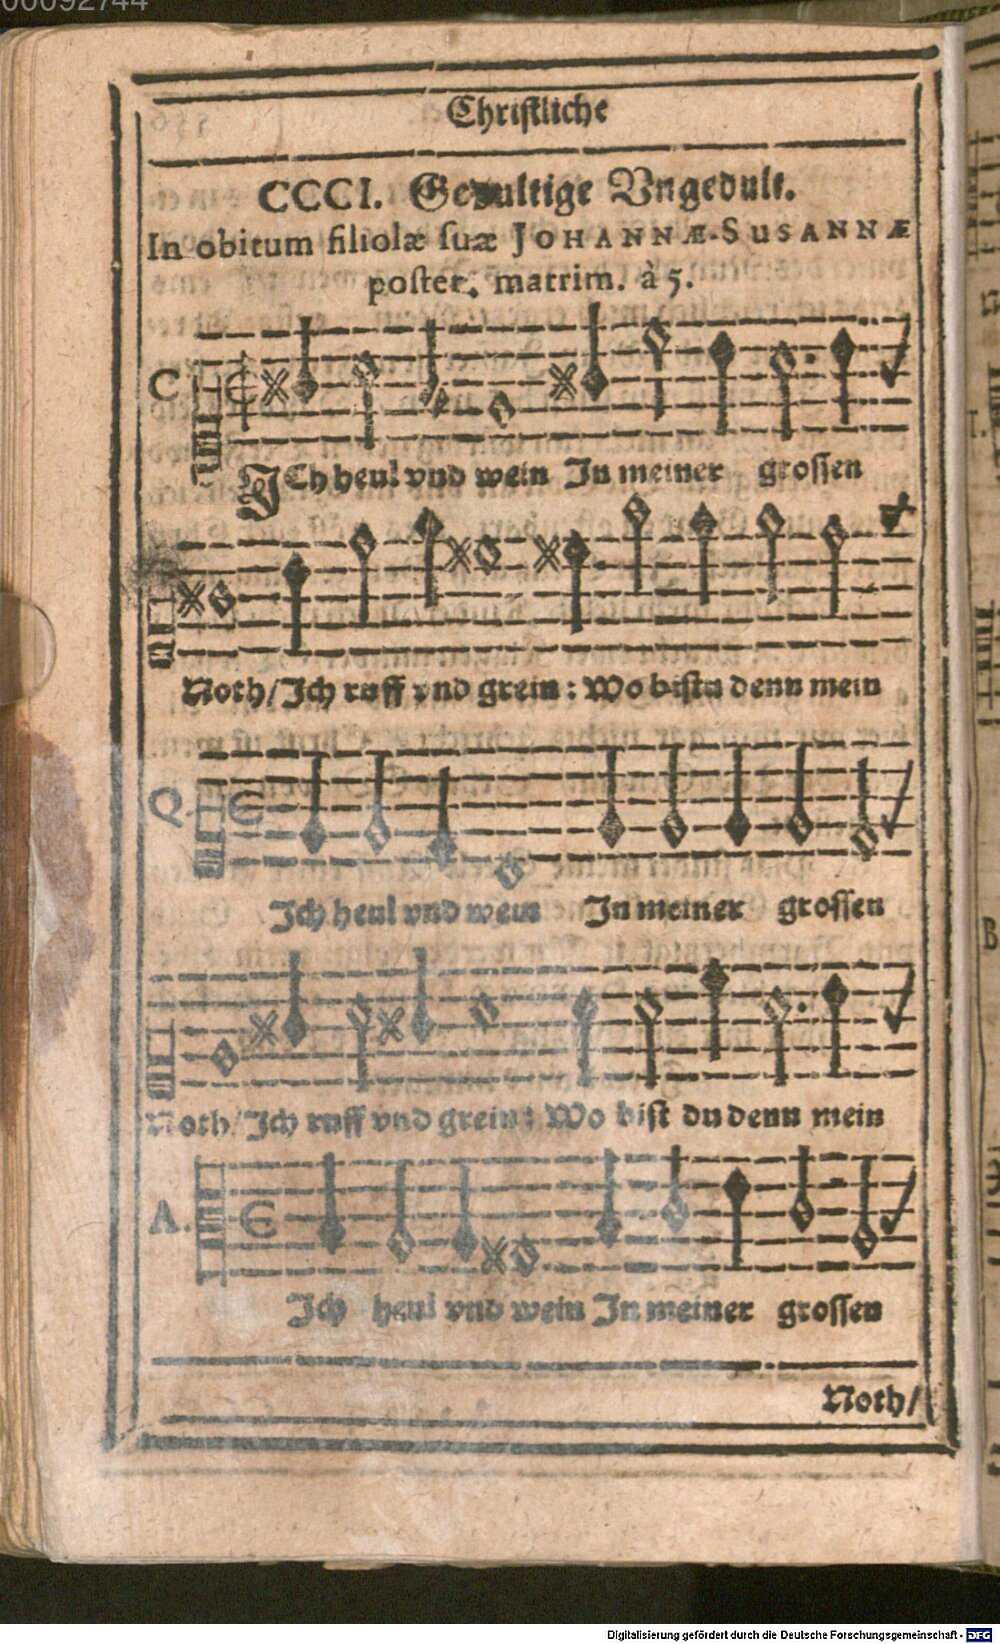 00092744
Christliche
CCCI. Gedultige Vngedult.
In obitum filiolæ suæ JOHANNÆ-SUSANNÆ
poster. matrim. à 5.
C
JCh heul vnd wein In meiner grossen
Noth/Ich ruff vnd grein: Wo bistu denn mein
Q.
Ich heul vnd wein In meiner grossen
Noth/Ich ruff vnd grein: Wo bist du denn mein
A.
Ich heul vnd wein In meiner grossen
Noth/
Digitalisierung gefördert durch die Deutsche Forschungsgemeinschaft - DFG